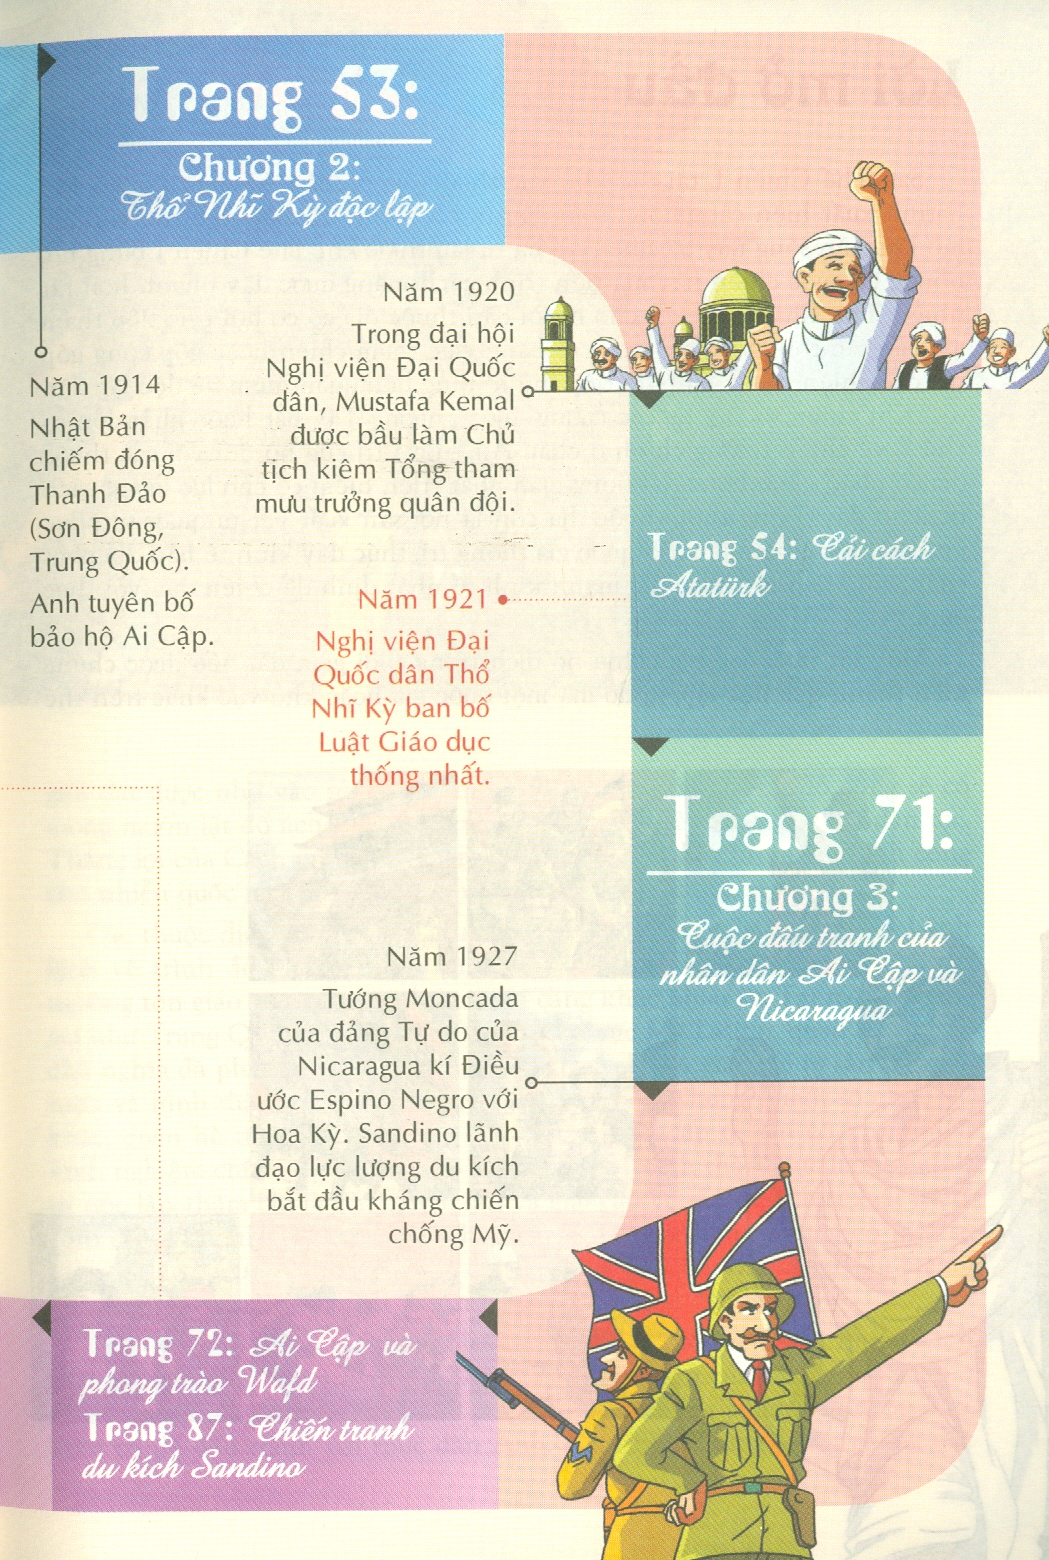 Trang 53:
Chương 2:
Thổ Nhĩ Kỳ độc lập
Năm 1914
Nhật Bản
chiếm đóng
Thanh Đảo
(Sơn Đông,
Trung Quốc).
Anh tuyên bố
bảo hộ Ai Cập.
Năm 1920
Trong đại hội
Nghị viện Đại Quốc
dân, Mustafa Kemal
được bầu làm Chủ
tịch kiêm Tổng tham
mưu trưởng quân đội.
Trang 54: Cải cách
Atatürk
Năm 1921
Nghị viện Đại
Quốc dân Thổ
Nhĩ Kỳ ban bố
Luật Giáo dục
thống nhất.
Trang 71:
Chương 3:
Cuộc đấu tranh của
nhân dân Ai Cập và
Nicaragua
Năm 1927
Tướng Moncada
của đảng Tự do của
Nicaragua kí Điều
ước Espino Negro với
Hoa Kỳ. Sandino lãnh
đạo lực lượng du kích
bắt đầu kháng chiến
chống Mỹ.
Trang 72: Ai Cập và
phong trào Wafd
Trang 87: Chiến tranh
du kích Sandino